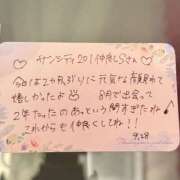 ♡ サンシティ201 仲良しさん ♡
今日は2ヶ月ぶりに元気な顔見れて
嬉しかったよ
8月で出会って
2年たったのあっという間すぎたね♪
これからも仲良くしてね!!
9.28